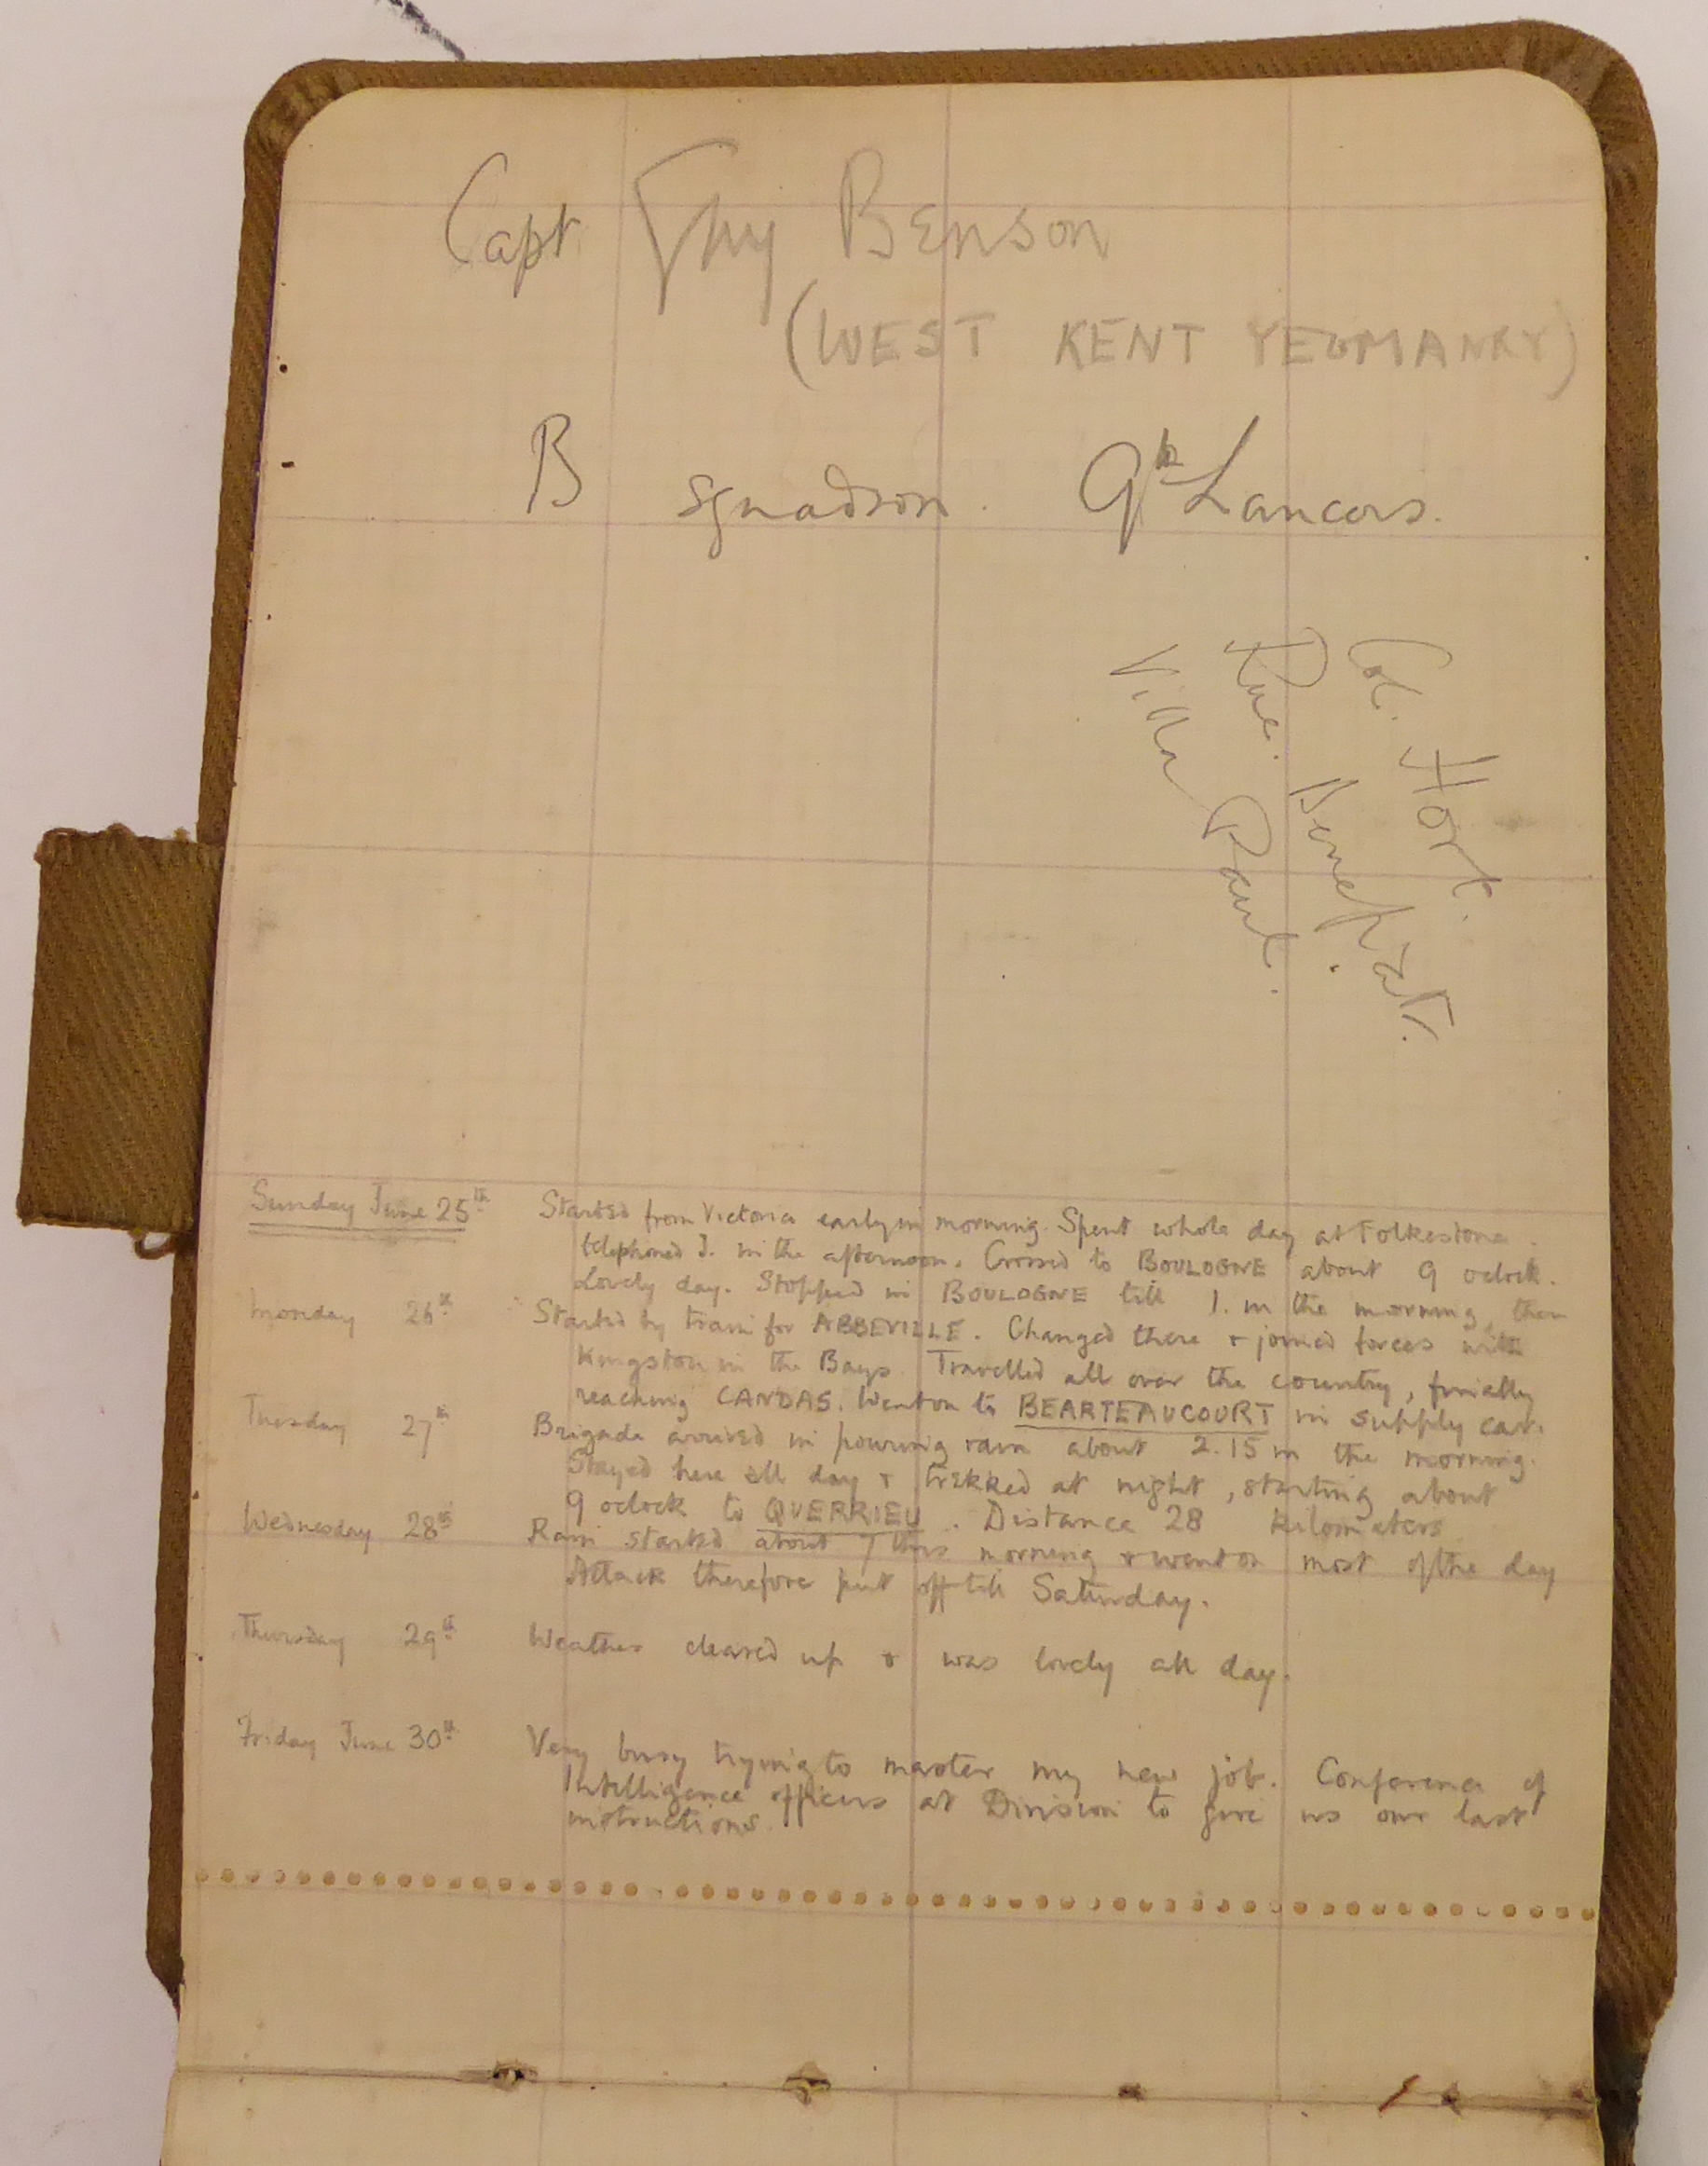 Capt Guy Benson
(WEST KENT YEOMANRY)
B Squadron. 9th Lancers.
Col. Hort.
Rue.
Villa Paul.
Sunday June 25th Started from Victoria early in morning. Spent whole day at Folkestone.
telephoned J. in the afternoon. Crossed to BOULOGNE about 9 oclock.
Lovely day. Stopped in BOULOGNE till 1. in the morning, then
Monday 26th Started by train for ABBEVILLE. Changed there + joined forces with
Kingston in the Bays. Travelled all over the country, finially
reaching CANDAS. Went on to BEARTEAUCOURT in supply car.
Tuesday 27th Brigade arrived in pouring rain about 2.15 in the morning.
Stayed here all day + trekked at night, starting about
9 oclock to QUERRIEU. Distance 28 kilometers
Wednesday 28th Rain started about 7 this morning + went on most of the day
Attack therefore put off till Saturday.
Thursday 29th Weather cleared up + was lovely all day.
Friday June 30th Very busy trying to master my new job. Conference of
Intelligence officers at Division to give us our last
instructions.